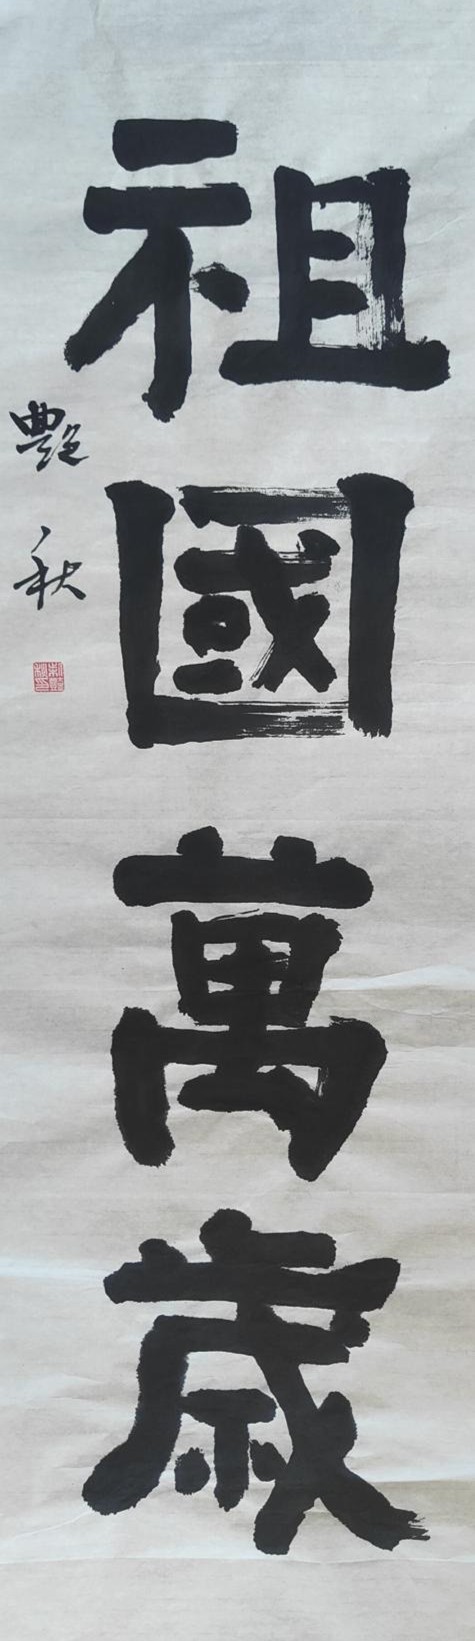 祖國萬歲
艷秋